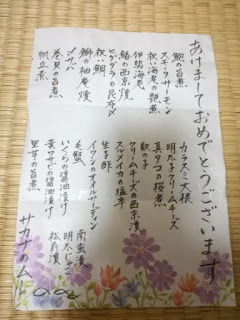 あけましておめでとうございます
鮑の旨煮
スモークサーモン
祝い海老の艶煮
伊勢海老
鰆の西京焼
祝い鯛
鰤の柚庵焼
〆サバ
巻貝の旨煮
帆立煮
カラスミ大根
明太子クリームチーズ
真タコの桜煮
数の子
クリームチーズの西京漬
スルメイカの塩辛
生子酢
イワシのオイルサーディン
毛蟹
いくらの醤油漬け
葉ワサビの醤油漬け
里芋の旨煮
南蛮漬
松前漬
サカナの